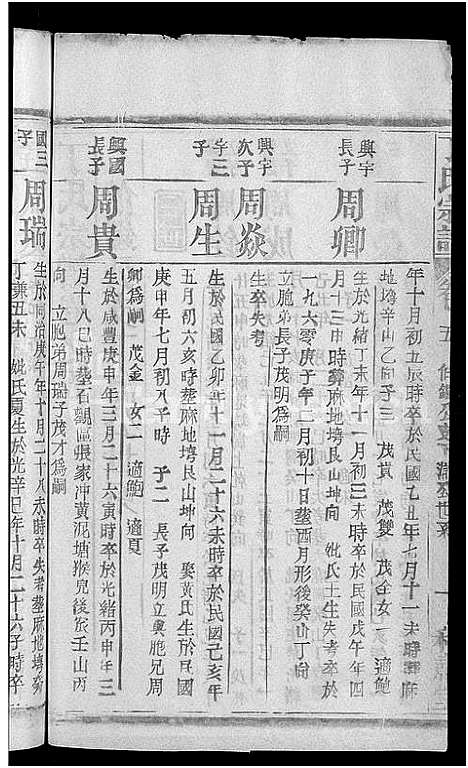 年十月初五辰時卒於民國乙丑年七月十一未時葬麻
地塆辛山乙向 子三 茂貰 茂雙 茂金 女一 適鮑
興宇長子
周卿
生於光緒丁未年十一月初三未時卒於民國戊午年四
月十三申時葬麻地塆艮山坤向 妣氏 生失考卒於
一九六零庚子年二月初十日葬酉月形後癸山丁向
立胞弟長子茂明爲嗣
興宇次子
周焱
生卒失考
宇三子
周生
生於民國乙卯年十一月二十六未時卒於民國己亥年
五月初六亥時葬麻地塆艮山坤向 娶黃氏生於民國
庚申年七月初八子時 子二 長子茂明立與胞兄周
卿爲嗣 茂金 女二 適鮑 適夏
興國長子
周貴
生於咸豐庚申年三月二十六寅時卒於光緒丙申年三
月十八巳時葬石觀區張家冲黃泥塘猴兒後脈壬山丙
向 立胞弟周瑞子茂才爲嗣
國三子
周瑞
生於同治庚午年十月二十八未時卒失考葬麻地塆
丁兼五未 妣氏夏生於光 辛巳年十月二十六子時卒